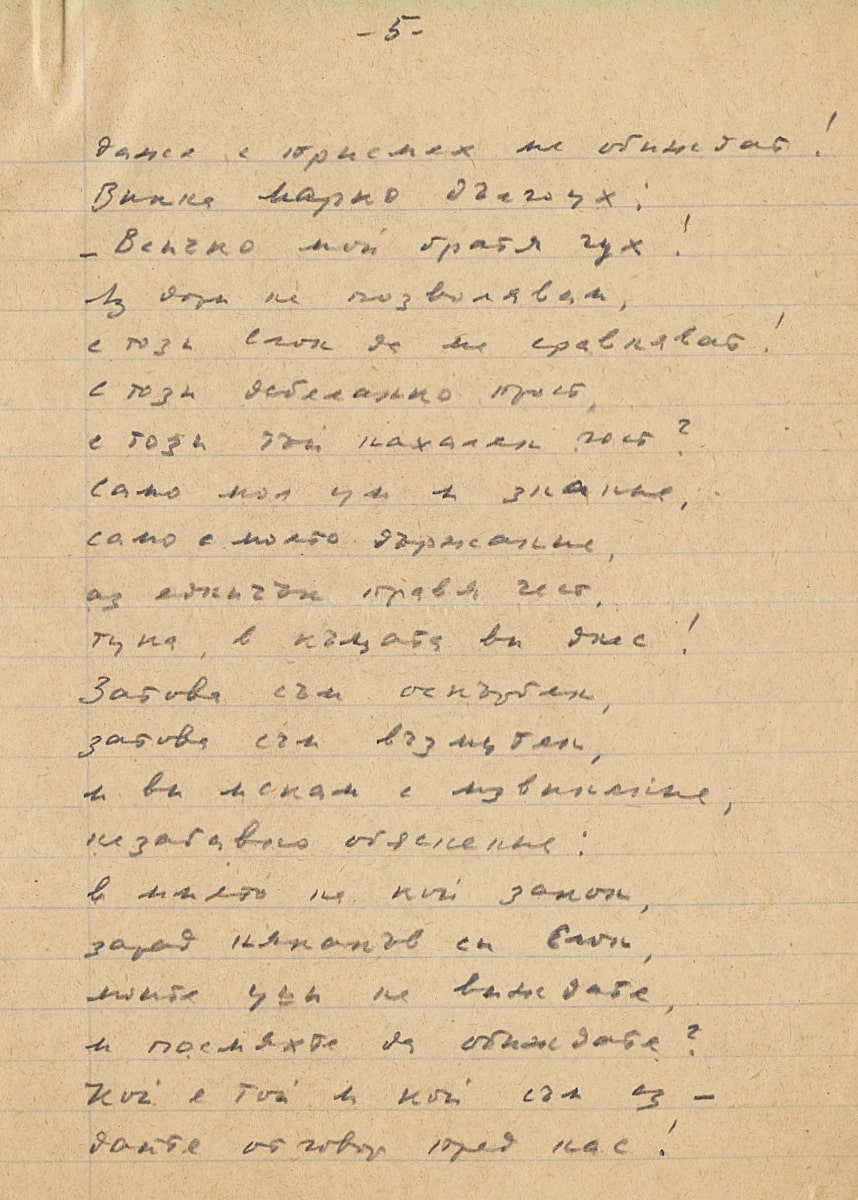 - 5 -
даже с присмех ме обиждат!
Вика Марко Дългоух:
- Всичко мой братя чух!
Аз дори не позволявам,
с този Слон да ме сравняват!
С този дебеланко прост,
с този тъй нахален гост?
Само моя ум и знанье,
само с моето държание,
аз едничък правя чест,
тука, в къщата ви днес!
Затова съм оскърбен,
затова съм възмутен,
и ви искам с извинение,
незабавно обяснение:
в името на кой закон,
зарад някакъв си Слон,
моите уши не виждате,
и посмяхте да обиждате?
Кой е той и кой съм аз -
дайте отговор пред нас!